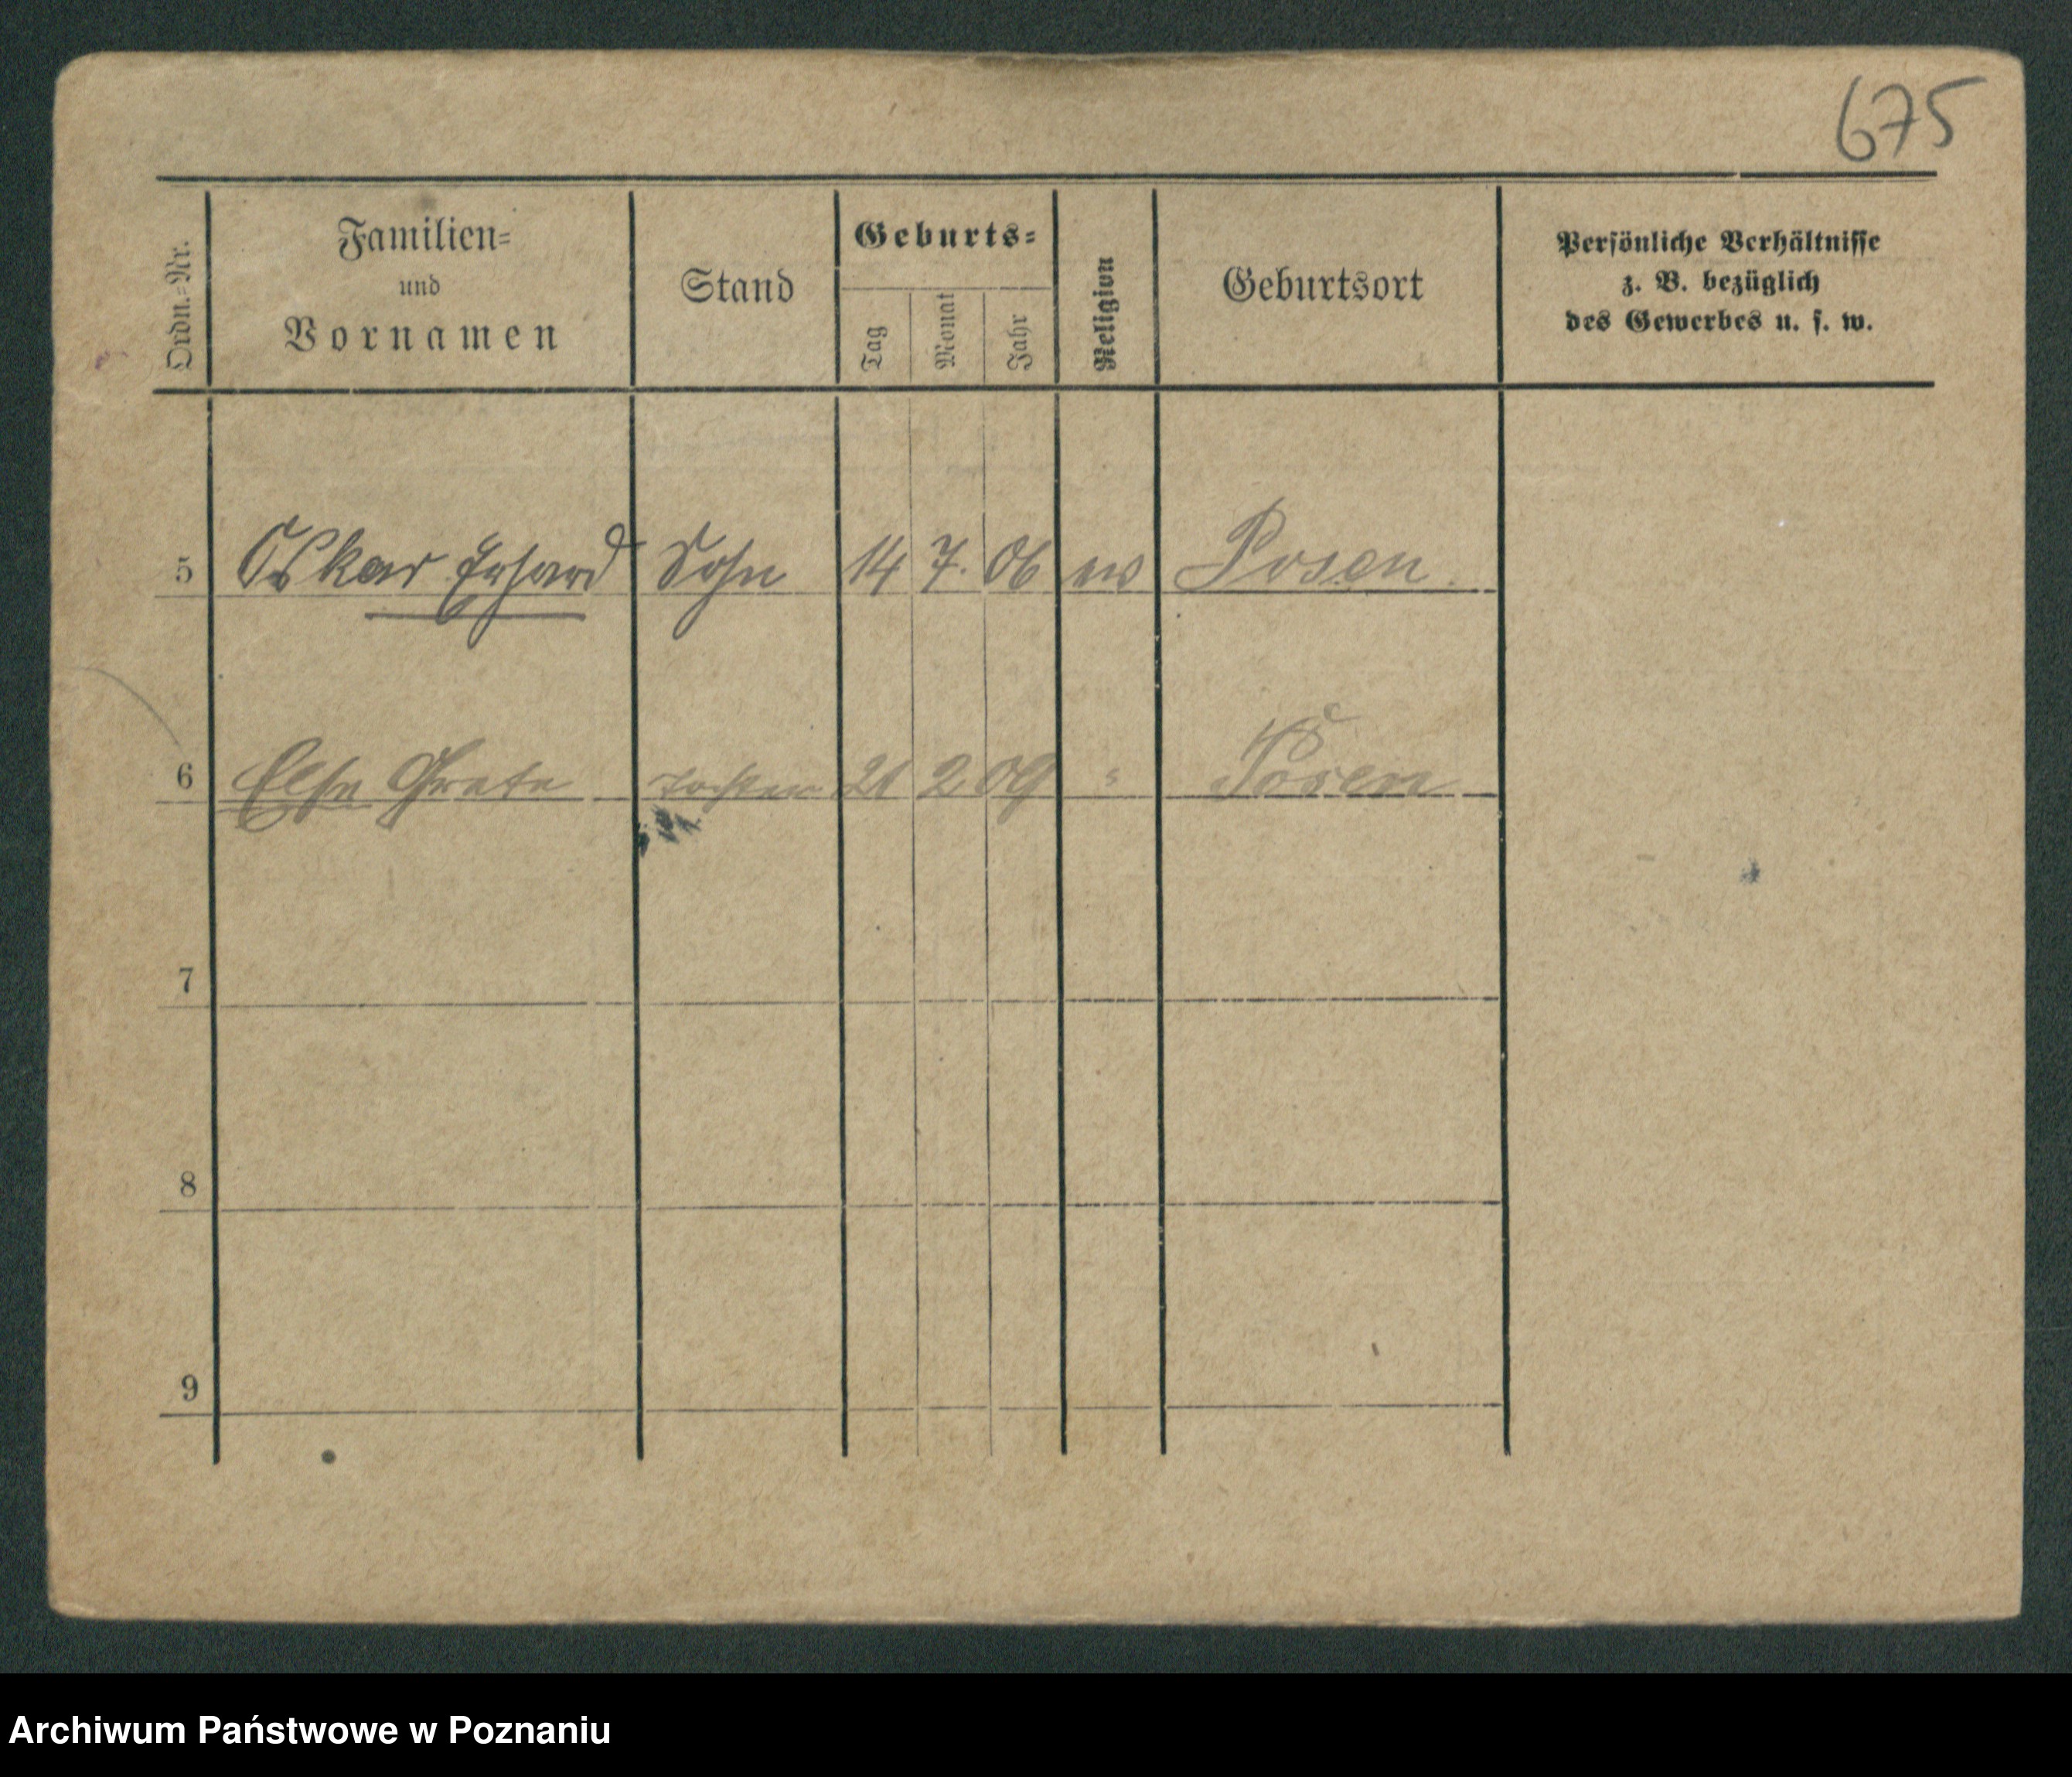 675
Ordn.-Nr.
Familien-
und
Vornamen
Stand
Geburts-
Tag
Monat
Jahr
Religion
Geburtsort
Persönliche Verhältnisse
z. B. bezüglich
des Gewerbes u. s. w.
5 Oskar Erhard Sohn 14 7. 06 ev Posen
6 Else Grete Tochter 21 2 09 " Posen
7
8
9
Archiwum Państwowe w Poznaniu